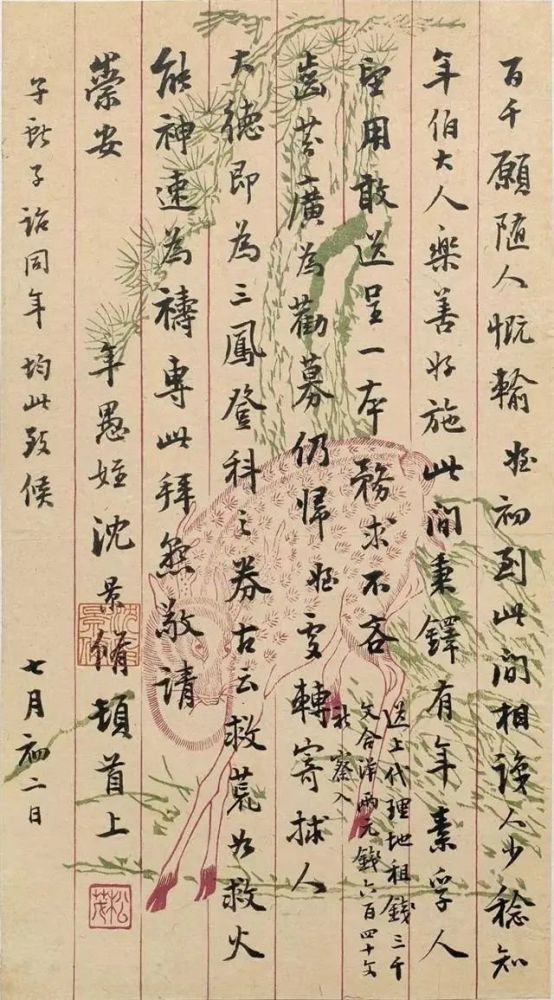 百千願隨人慨輸姪初到此間相識人少稔知
年伯大人樂善好施此間秉鐸有年素孚人
望用敢送呈一本務求不吝
齒芬廣為勸募仍歸姪處轉寄捄人
大德即為三鳳登科之券古云救荒如救火
能神速為禱專此拜懇敬請
崇安
年愚姪沈景脩頓首上
子 子詒同年均此致候
七月初二日
送上代理地租錢三千
文合洋兩元錢六百四十文
祈察入
松茂